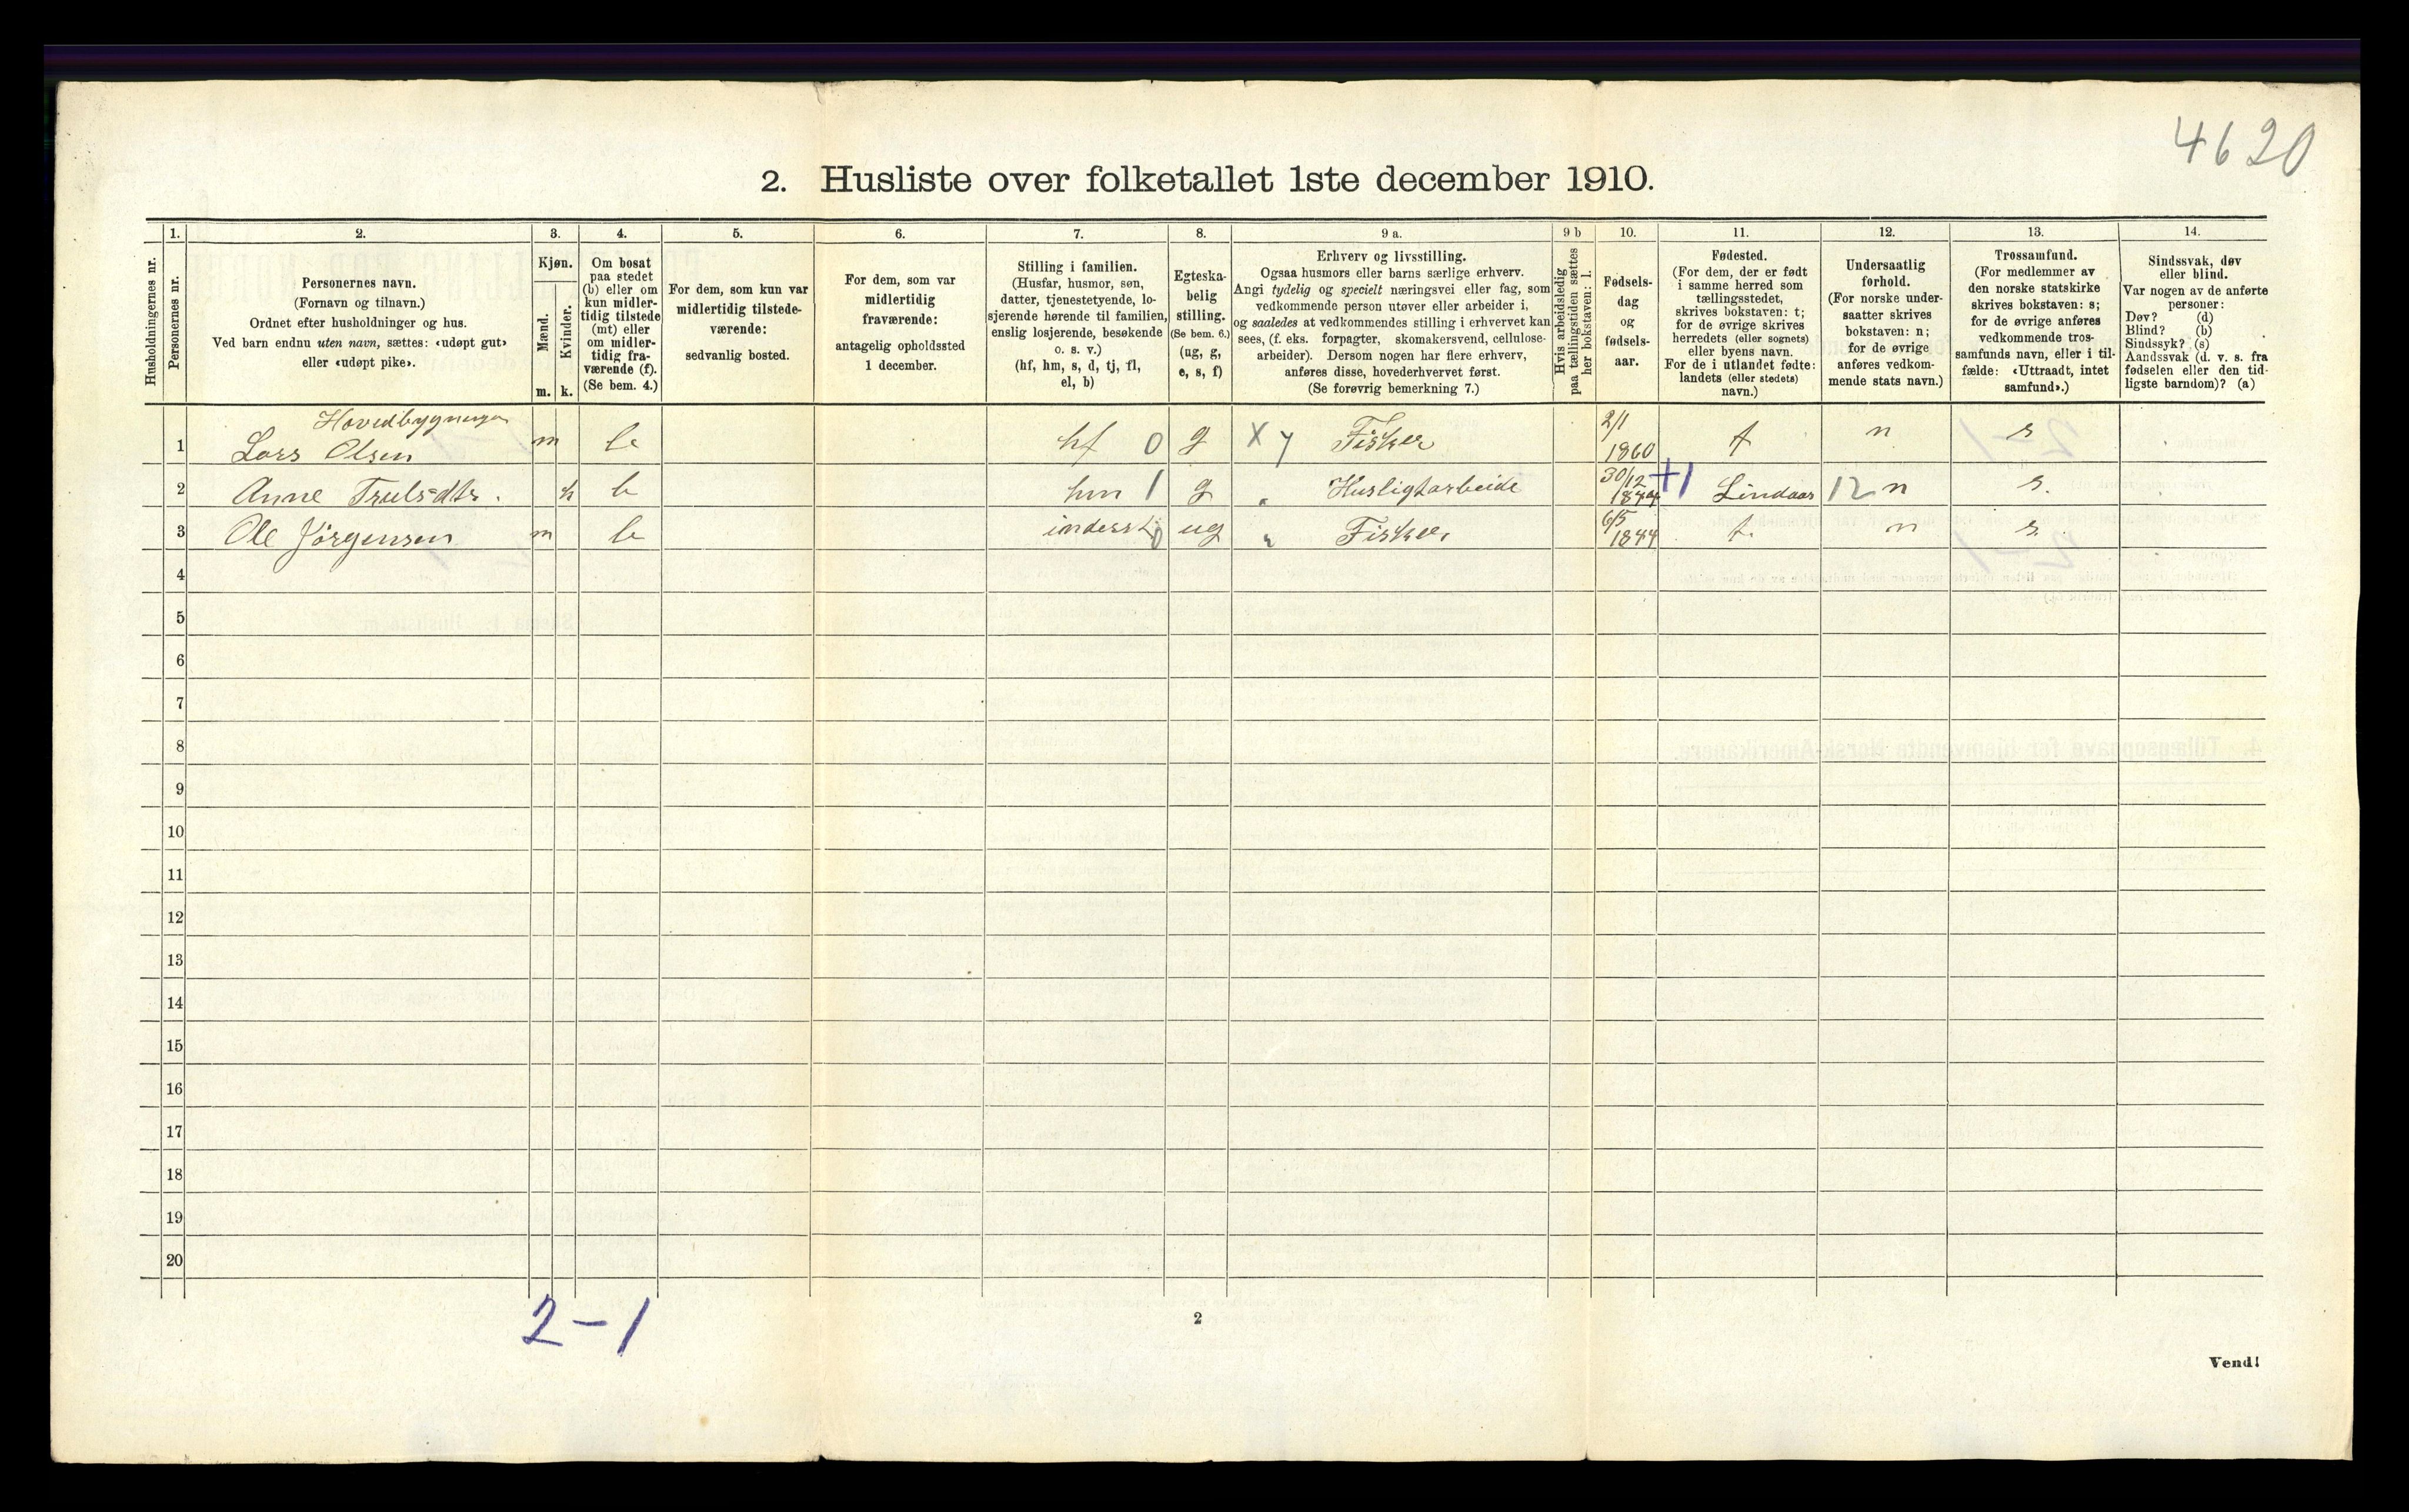 4620
2. Husliste over folketallet 1ste december 1910.
Husholdningernes nr.
1.
Personernes nr.
2.
Personernes navn.
(Fornavn og tilnavn.)
Ordnet efter husholdninger og hus.
Ved barn endnu uten navn, sættes: «udøpt gut»
eller «udøpt pike».
3.
Kjøn.
Mænd.
Kvinder.
m. k.
4.
Om bosat
paa stedet
(b) eller om
kun midler-
tidig tilstede
(mt) eller
om midler-
tidig fra-
værende (f).
(Se bem. 4.)
5.
For dem, som kun var
midlertidig tilstede-
værende:
sedvanlig bosted.
6.
For dem, som var
midlertidig
fraværende:
antagelig opholdssted
1 december.
7.
Stilling i familien.
(Husfar, husmor, søn,
datter, tjenestetyende, lo-
sjerende hørende til familien,
enslig losjerende, besøkende
o. s. v.)
(hf, hm, s, d, tj, fl,
el, b)
8.
Egteska-
belig
stilling.
(Se bem. 6.)
(ug, g,
e, s, f)
9 a.
Erhverv og livsstilling.
Ogsaa husmors eller barns særlige erhverv.
Angi tydelig og specielt næringsvei eller fag, som
vedkommende person utøver eller arbeider i,
og saaledes at vedkommendes stilling i erhvervet kan
sees, (f. eks. forpagter, skomakersvend, cellulose-
arbeider). Dersom nogen har flere erhverv,
anføres disse, hovederhvervet først.
(Se forøvrig bemerkning 7.)
9 b
Hvis arbeidsledig
paa tællingstiden sættes
her bokstaven: l.
10.
Fødsels-
dag
og
fødsels-
aar.
11.
Fødested.
(For dem, der er født
i samme herred som
tællingsstedet,
skrives bokstaven: t;
for de øvrige skrives
herredets (eller sognets)
eller byens navn.
For de i utlandet fødte:
landets (eller stedets)
navn.)
12.
Undersaatlig
forhold.
(For norske under-
saatter skrives
bokstaven: n;
for de øvrige
anføres vedkom-
mende stats navn.)
13.
Trossamfund.
(For medlemmer av
den norske statskirke
skrives bokstaven: s;
for de øvrige anføres
vedkommende tros-
samfunds navn, eller i til-
fælde: «Uttraadt, intet
samfund».)
14.
Sindssvak, døv
eller blind.
Var nogen av de anførte
personer:
Døv? (d)
Blind? (b)
Sindssyk? (s)
Aandssvak (d. v. s. fra
fødselen eller den tid-
ligste barndom)? (a)
Hovedbygningen
1 Lars Olsen m b hf 0 g X y Fisker 2/1 1860 t n s
2 Anne Trulsdtr. k b hm 1 g " Husligtarbeide 30/12 +1 Lindaas 12 n s.
3 Ole Jörgensen m b 0 ug " Fisker 6/5 1844 t. n s.
4
5
6
7
8
9
10
11
12
13
14
15
16
17
18
19
20
2-1
2
Vend!